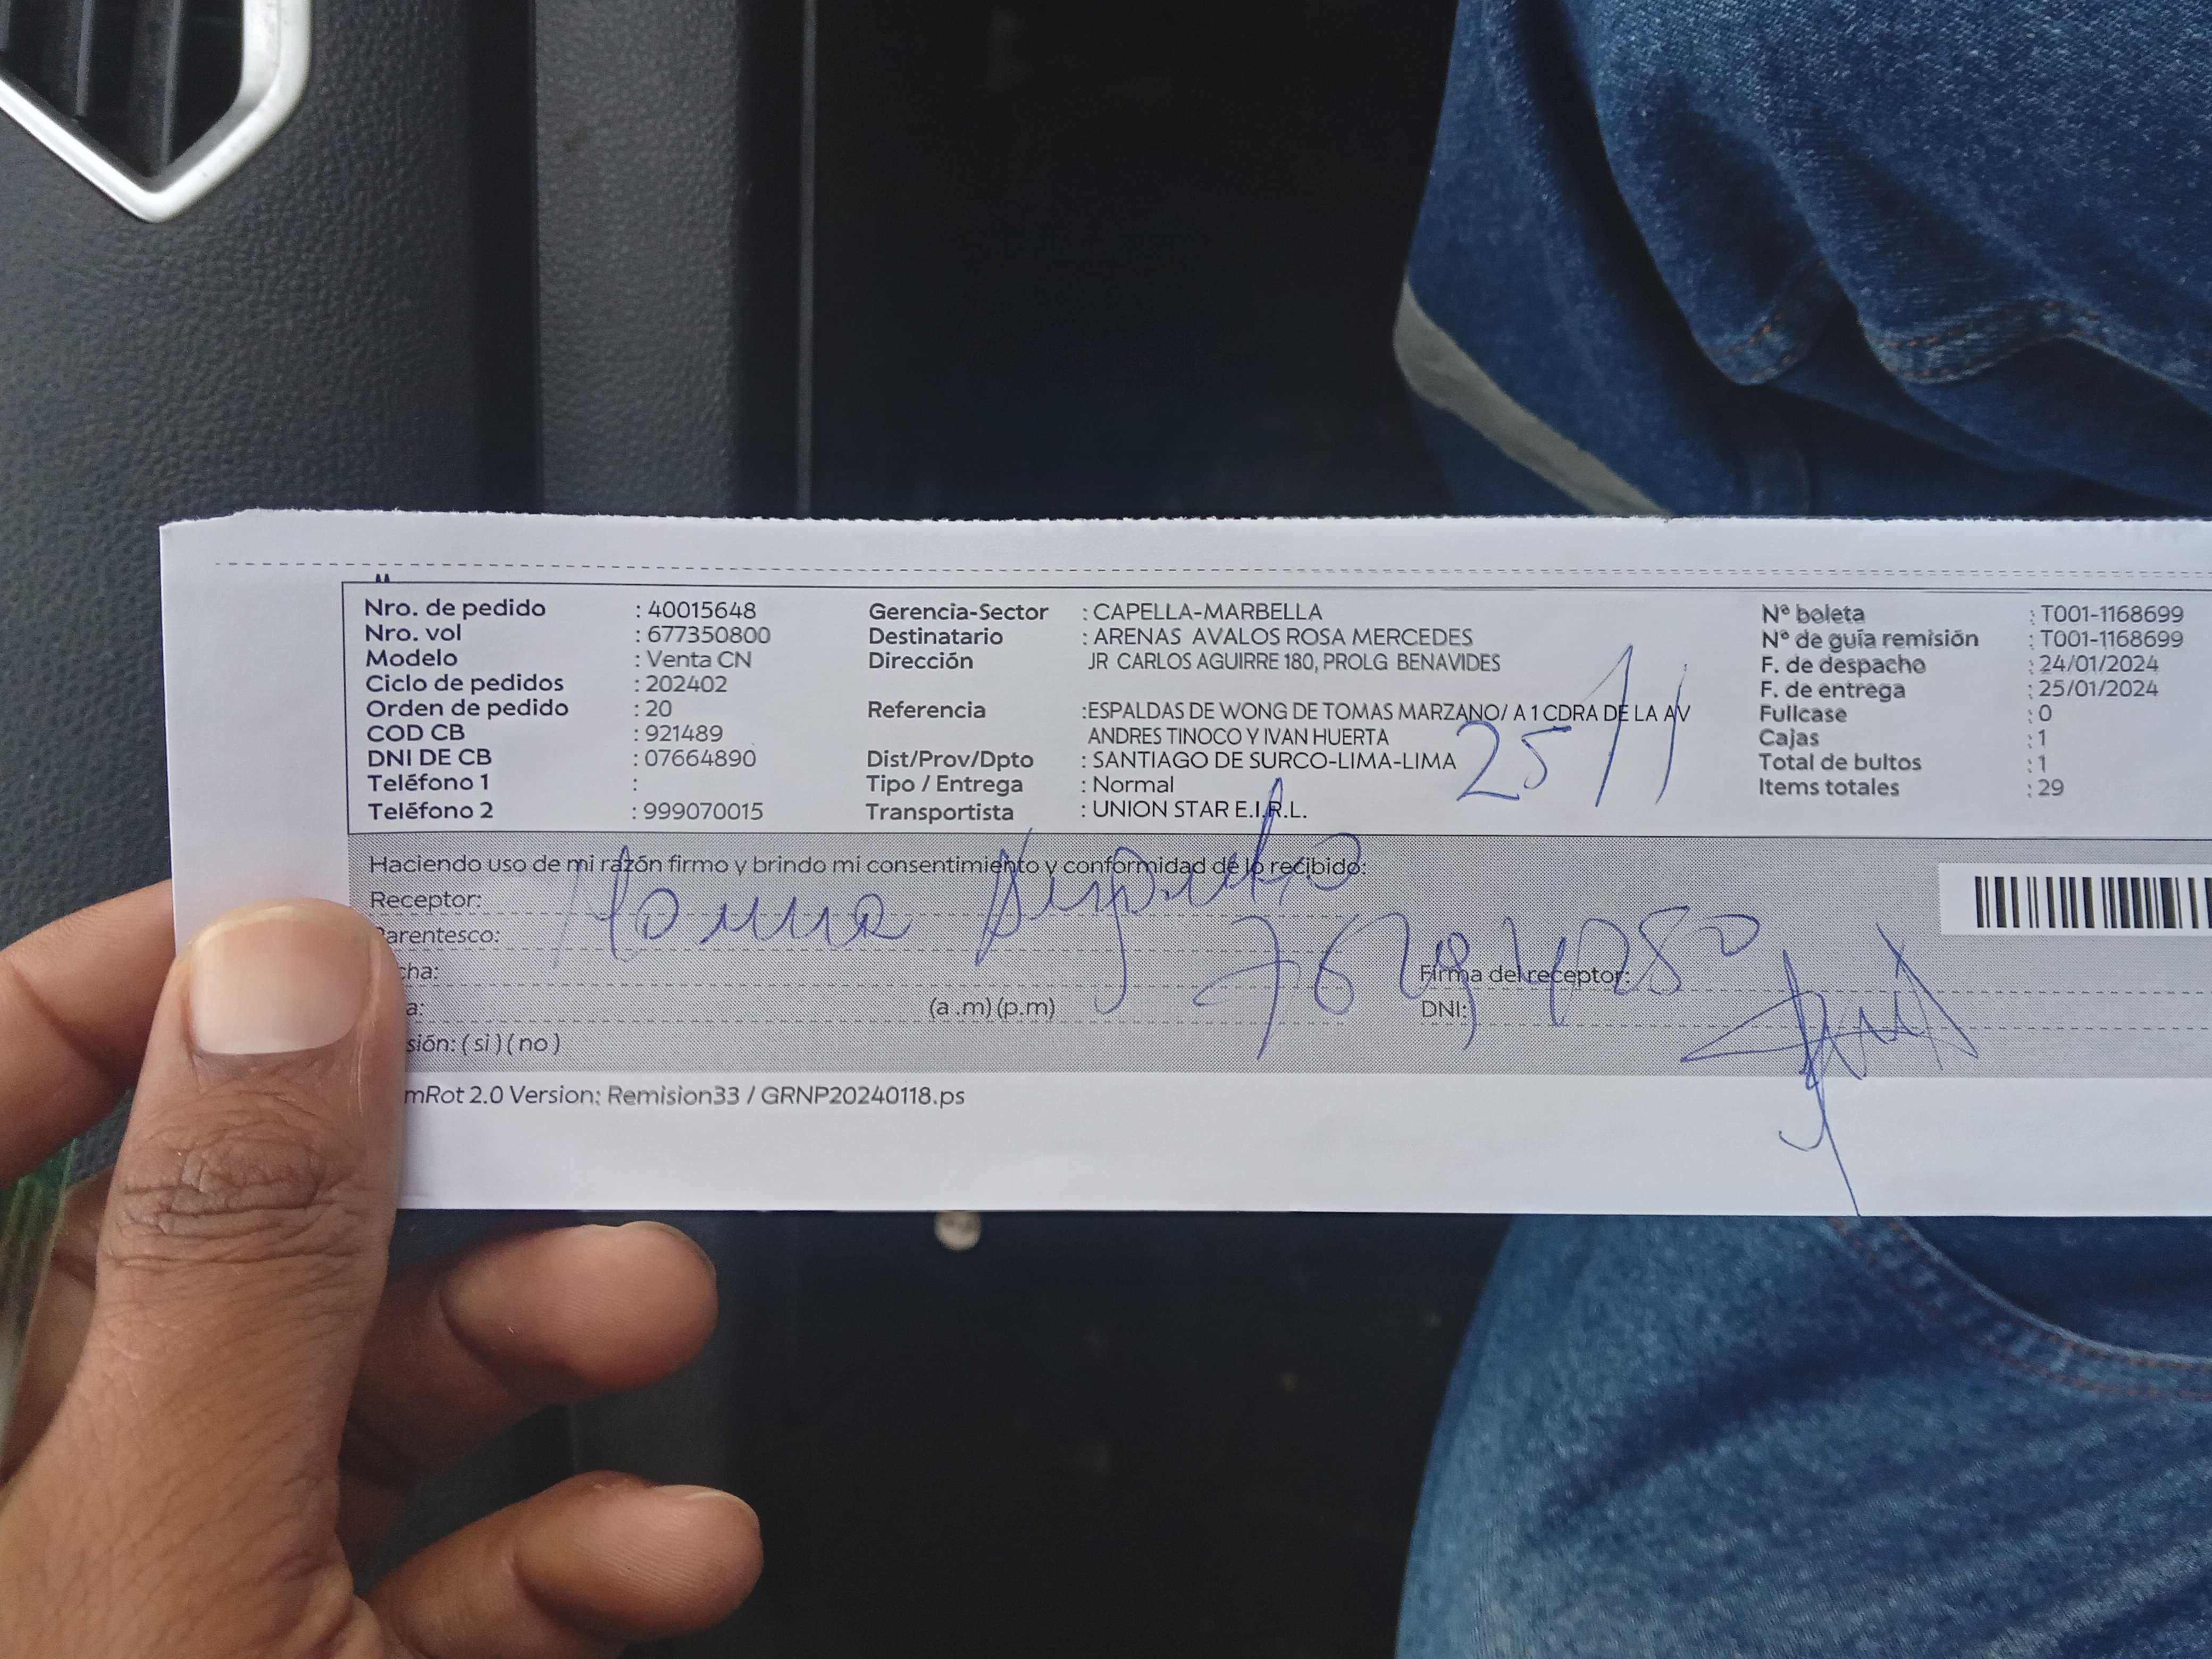 Nro. de pedido : 40015648 Gerencia-Sector : CAPELLA-MARBELLA Nº boleta : T001-1168699
Nro. vol : 677350800 Destinatario : ARENAS AVALOS ROSA MERCEDES Nº de guía remisión : T001-1168699
Modelo : Venta CN Dirección JR CARLOS AGUIRRE 180, PROLG BENAVIDES F. de despacho : 24/01/2024
Ciclo de pedidos : 202402 F. de entrega : 25/01/2024
Orden de pedido : 20 Referencia :ESPALDAS DE WONG DE TOMAS MARZANO/ A 1 CDRA DE LA AV Fullcase : 0
COD CB : 921489 ANDRES TINOCO Y IVAN HUERTA Cajas : 1
DNI DE CB : 07664890 Dist/Prov/Dpto : SANTIAGO DE SURCO-LIMA-LIMA Total de bultos : 1
Teléfono 1 : Tipo / Entrega : Normal Items totales : 29
Teléfono 2 : 999070015 Transportista : UNION STAR E.I.R.L.
25/1
Haciendo uso de mi razón firmo y brindo mi consentimiento y conformidad de lo recibido:
Receptor:
arentesco:
cha: Firma del receptor:
a: (a .m) (p.m) DNI:
sión: ( si ) ( no )
mRot 2.0 Version: Remision33 / GRNP20240118.ps